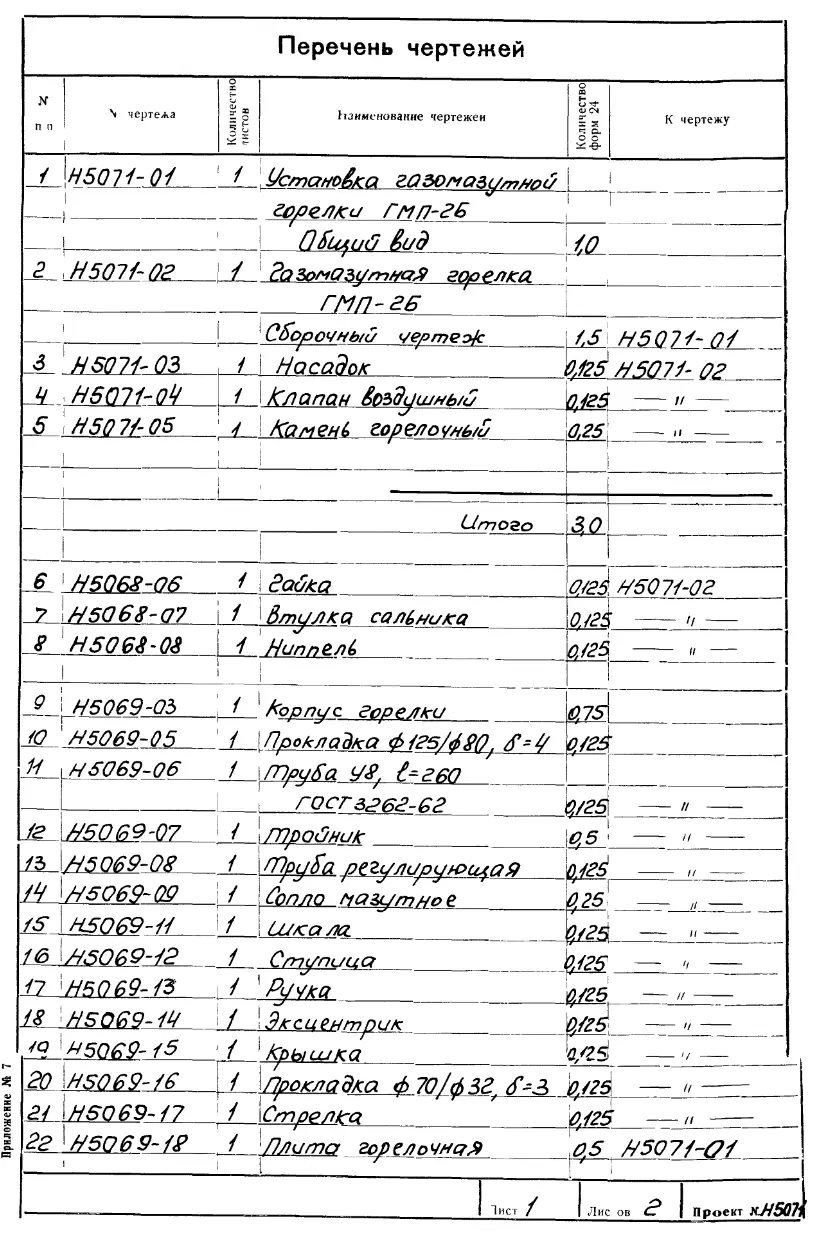 Перечень чертежей
N п п N чертежа Количество листов Наименование чертежей Количество форм 24 К чертежу
1 Н5071-01 1 Установка газомазутной
горелки ГМП-2Б
Общий вид 1,0
2 Н5071-02 1 Газомазутная горелка
ГМП-2Б
Сборочный чертеж 1,5 Н5071-01
3 Н5071-03 1 Насадок 0,125 Н5071-02
4 Н5071-04 1 Клапан воздушный 0,125 — " —
5 Н5071-05 1 Камень горелочный 0,25 — " —
Итого 3,0
6 Н5068-06 1 Гайка 0,125 Н5071-02
7 Н5068-07 1 Втулка сальника 0,125 — " —
8 Н5068-08 1 Ниппель 0,125 — " —
9 Н5069-03 1 Корпус горелки 0,75
10 Н5069-05 1 Прокладка ф125/ф80, δ=4 0,125
11 Н5069-06 1 Труба У8, ℓ=260
ГОСТ 3262-62 0,125 — " —
12 Н5069-07 1 Тройник 0,5 — " —
13 Н5069-08 1 Труба регулирующая 0,125 — " —
14 Н5069-09 1 Сопло мазутное 0,25 — " —
15 Н5069-11 1 Шкала 0,125 — " —
16 Н5069-12 1 Ступица 0,125 — " —
17 Н5069-13 1 Ручка 0,125 — " —
18 Н5069-14 1 Эксцентрик 0,125 — " —
19 Н5069-15 1 Крышка 0,125 — " —
20 Н5069-16 1 Прокладка ф70/ф32, δ=3 0,125 — " —
21 Н5069-17 1 Стрелка 0,125 — " —
22 Н5069-18 1 Плита горелочная 0,5 Н5071-01
Приложение № 7
Лист 1 Лис ов 2 Проект №Н5071